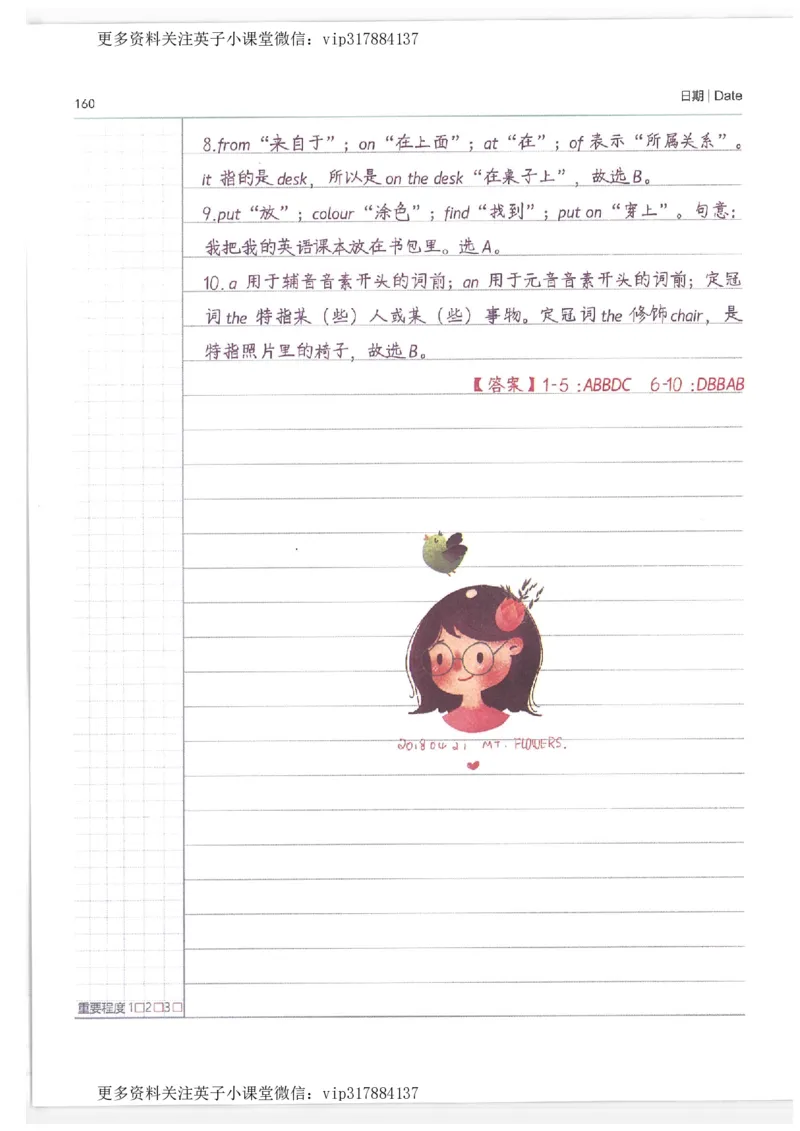 更多资料关注英子小课堂微信：vip317884137
160
日期 | Date
8.from“来自于”；on“在上面”；at“在”；of 表示“所属关系”。
it 指的是 desk，所以是 on the desk“在桌子上”，故选 B。
9.put“放”；colour“涂色”；find“找到”；put on“穿上”。句意：
我把我的英语课本放在书包里。选 A。
10.a 用于辅音音素开头的词前；an 用于元音音素开头的词前；定冠
词 the 特指某（些）人或某（些）事物。定冠词 the 修饰 chair，是
特指照片里的椅子，故选 B。
【答案】1-5 :ABBDC 6-10 :DBBAB
20180421 MT. FLOWERS.
重要程度 1□2□3□
更多资料关注英子小课堂微信：vip317884137